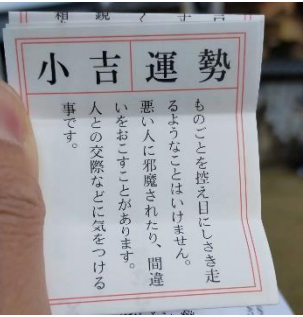 小吉 運勢
ものごとを控え目にしさき走
るようなことはいけません。
悪い人に邪魔されたり、間違
いをおこすことがあります。
人との交際などに気をつける
事です。